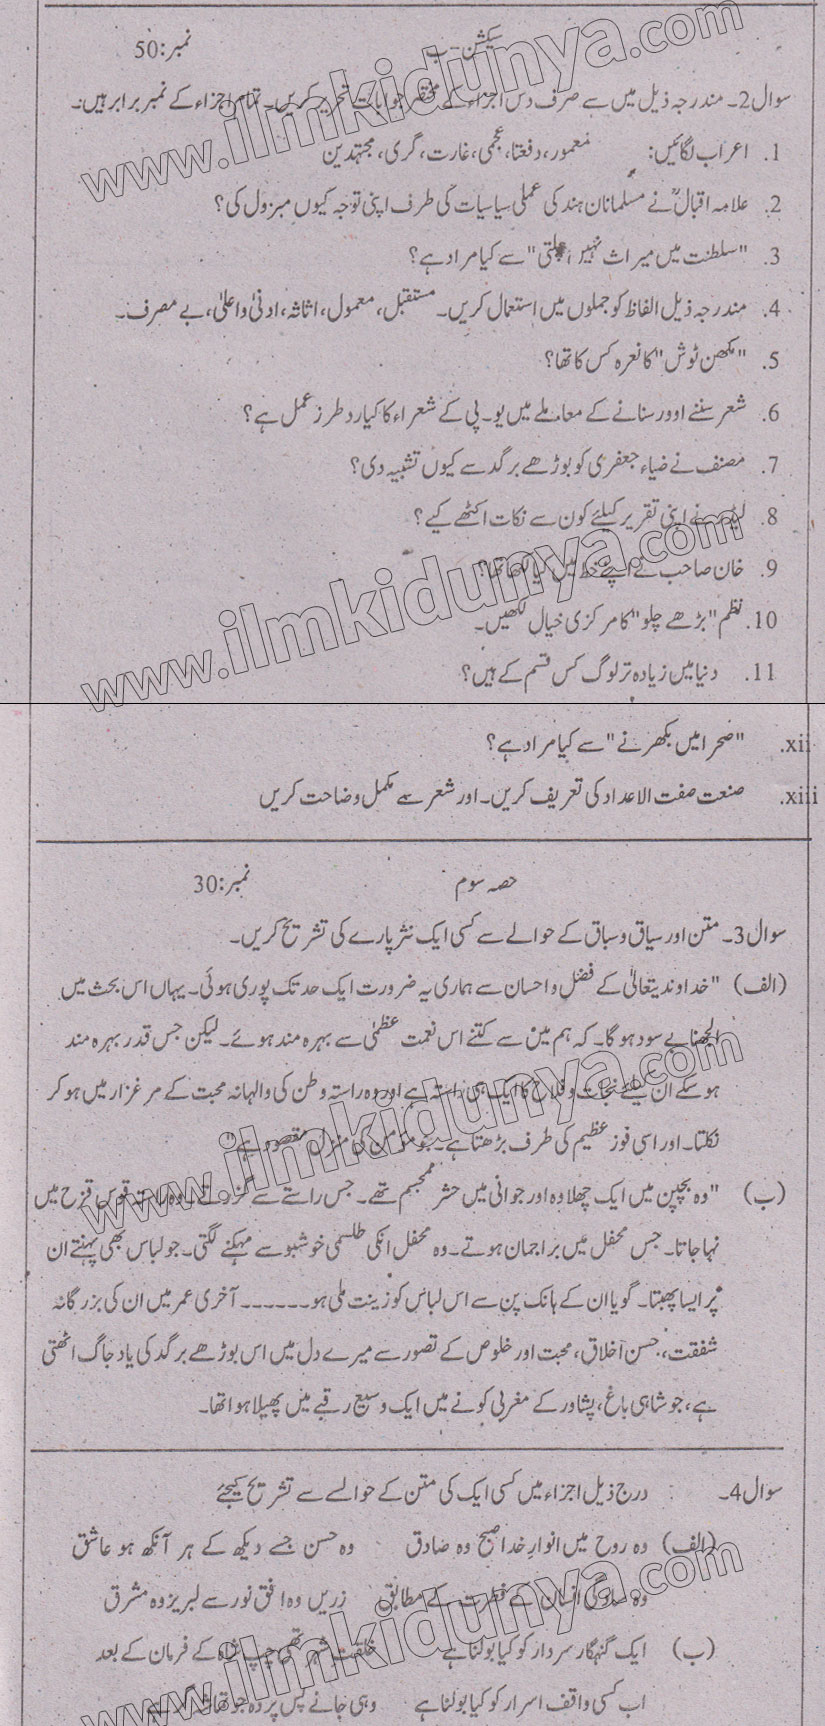 سیکشن-ب نمبر:50
سوال2۔ مندرجہ ذیل میں سے صرف دس اجزاء کے مختصر جوابات تحریر کریں۔ تمام اجزاء کے نمبر برابر ہیں۔
1. اعراب لگائیں: معمور، دفعتا، عجمی، غارت، گری، مجتہدین
2. علامہ اقبالؒ نے مسلمانان ہند کی عملی سیاسیات کی طرف اپنی توجہ کیوں مبزول کی؟
3. "سلطنت میں میراث نہیں چلتی" سے کیا مراد ہے؟
4. مندرجہ ذیل الفاظ کو جملوں میں استعمال کریں۔ مستقبل، معمول، اثاثہ، ادنیٰ واعلیٰ، بے مصرف۔
5. "مکھن ٹوش" کا نعرہ کس کا تھا؟
6. شعر سننے اوور سنانے کے معاملے میں یو۔پی کے شعراء کا کیا رد طرز عمل ہے؟
7. مصنف نے ضیاء جعفری کو بوڑھے برگد سے کیوں تشبیہ دی؟
8. لیڈر نے اپنی تقریر کیلئے کون سے نکات اکٹھے کیے؟
9. خان صاحب نے اپنے خط میں کیا لکھا تھا؟
10. نظم "بڑھے چلو" کا مرکزی خیال لکھیں۔
11. دنیا میں زیادہ تر لوگ کس قسم کے ہیں؟
xii. "صحرا میں بکھرنے" سے کیا مراد ہے؟
xiii. صنعت صفت الاعداد کی تعریف کریں۔ اور شعر سے مکمل وضاحت کریں
حصہ سوم نمبر:30
سوال3۔ متن اور سیاق وسباق کے حوالے سے کسی ایک نثر پارے کی تشریح کریں۔
(الف) "خداوند یتعالیٰ کے فضل و احسان سے ہماری یہ ضرورت ایک حد تک پوری ہوئی۔ یہاں اس بحث میں
الجھنا بے سود ہو گا۔ کہ ہم میں سے کتنے اس نعمت عظمیٰ سے بہرہ مند ہوئے۔ لیکن جس قدر بہرہ مند
ہو سکے ان کیلئے نجات وفلاح کا ایک ہی راستہ ہے اور وہ راستہ وطن کی والہانہ محبت کے مرغزار میں ہو کر
نکلتا۔ اور اسی فوز عظیم کی طرف بڑھتا ہے۔ جو مومن کی منزل مقصود ہے"
(ب) "وہ بچپن میں ایک چھلاوہ اور جوانی میں حشر مجسم تھے۔ جس راستے سے گزرتے۔ وہ راستہ قوس قزح میں
نہا جاتا۔ جس محفل میں براجمان ہوتے۔ وہ محفل انکی طلسمی خوشبو سے مہکنے لگتی۔ جو لباس بھی پہنتے ان
پر ایسا پھبتا۔ گویا ان کے بانک پن سے اس لباس کو زینت ملی ہو۔۔۔۔۔۔ آخری عمر میں ان کی بزرگانہ
شفقت،، حسن اخلاق، محبت اور خلوص کے تصور سے میرے دل میں اس بوڑھے برگد کی یاد جاگ اٹھتی
ہے، جو شاہی باغ، پشاور کے مغربی کونے میں ایک وسیع رقبے میں پھیلا ہوا تھا۔
سوال4۔ : درج ذیل اجزاء میں کسی ایک کی متن کے حوالے سے تشریح کیجئے
(الف) وہ روح میں انوار خدا صبح وہ صادق وہ حسن جسے دیکھ کے ہر آنکھ ہو عاشق
وہ سادگی انسان کے فطرت کے مطابق زریں وہ افق نور سے لبریز وہ مشرق
(ب) ایک گنہگار سردار کو کیا بولنا ہے خلقت شہر تھی چپ شاہ کے فرمان کے بعد
اب کسی واقف اسرار کو کیا بولنا ہے وہی جانے پس پردہ جو تماشہ گر ہے
www.ilmkidunya.com
www.ilmkidunya.com
www.ilmkidunya.com
www.ilmkidunya.com